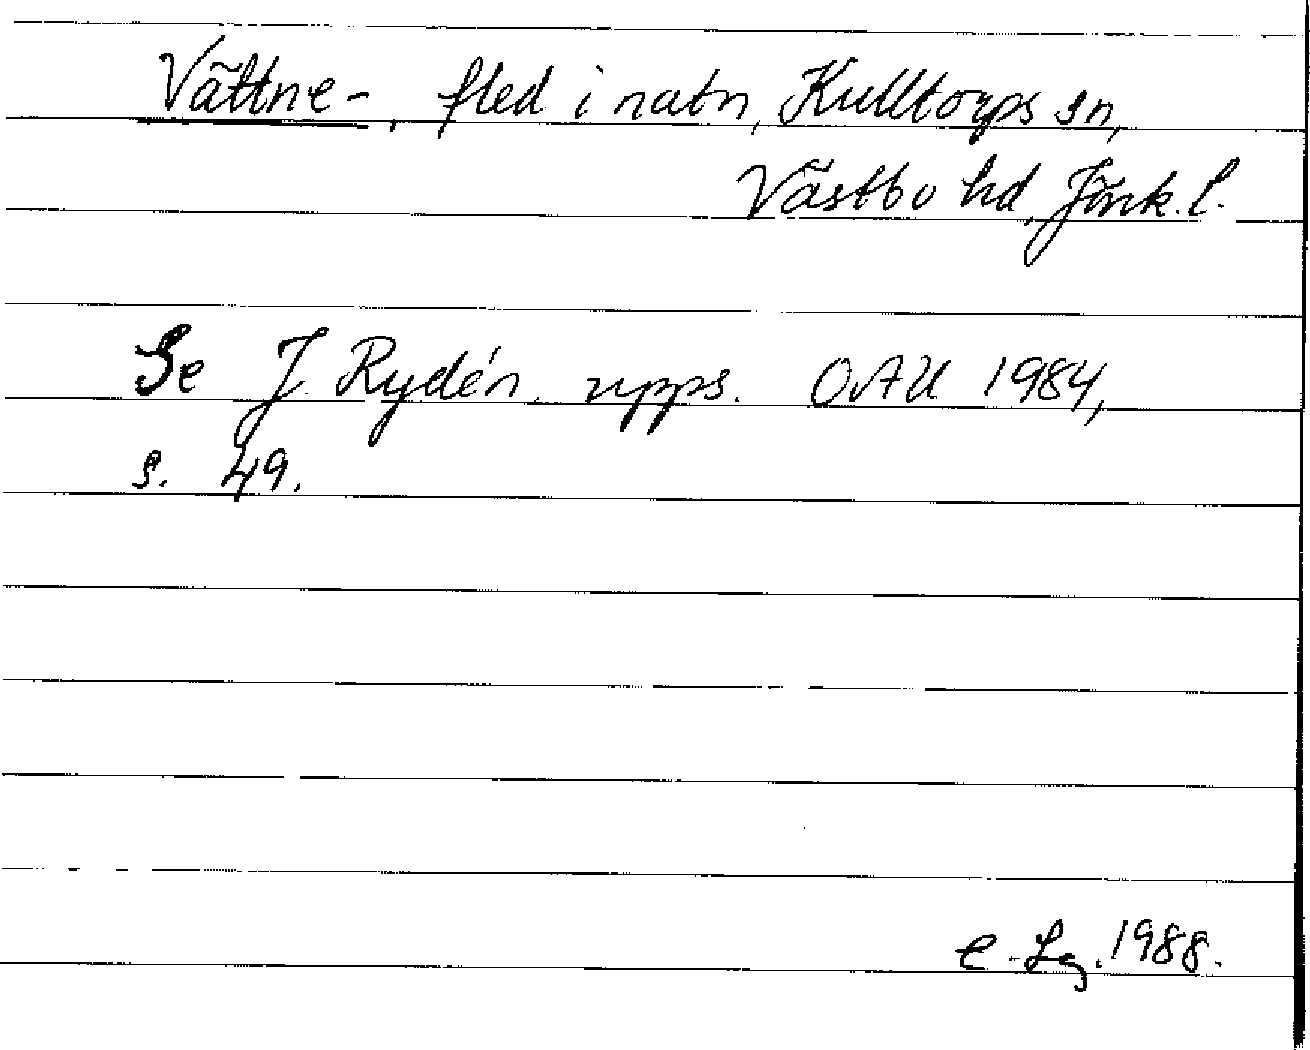 Vättne-, fled i natn, Kulltorps sn,
Västbo hd, Jönk. l.
Se J. Rydén, upps. OAU 1984,
s. 49.
C. Lg. 1988.